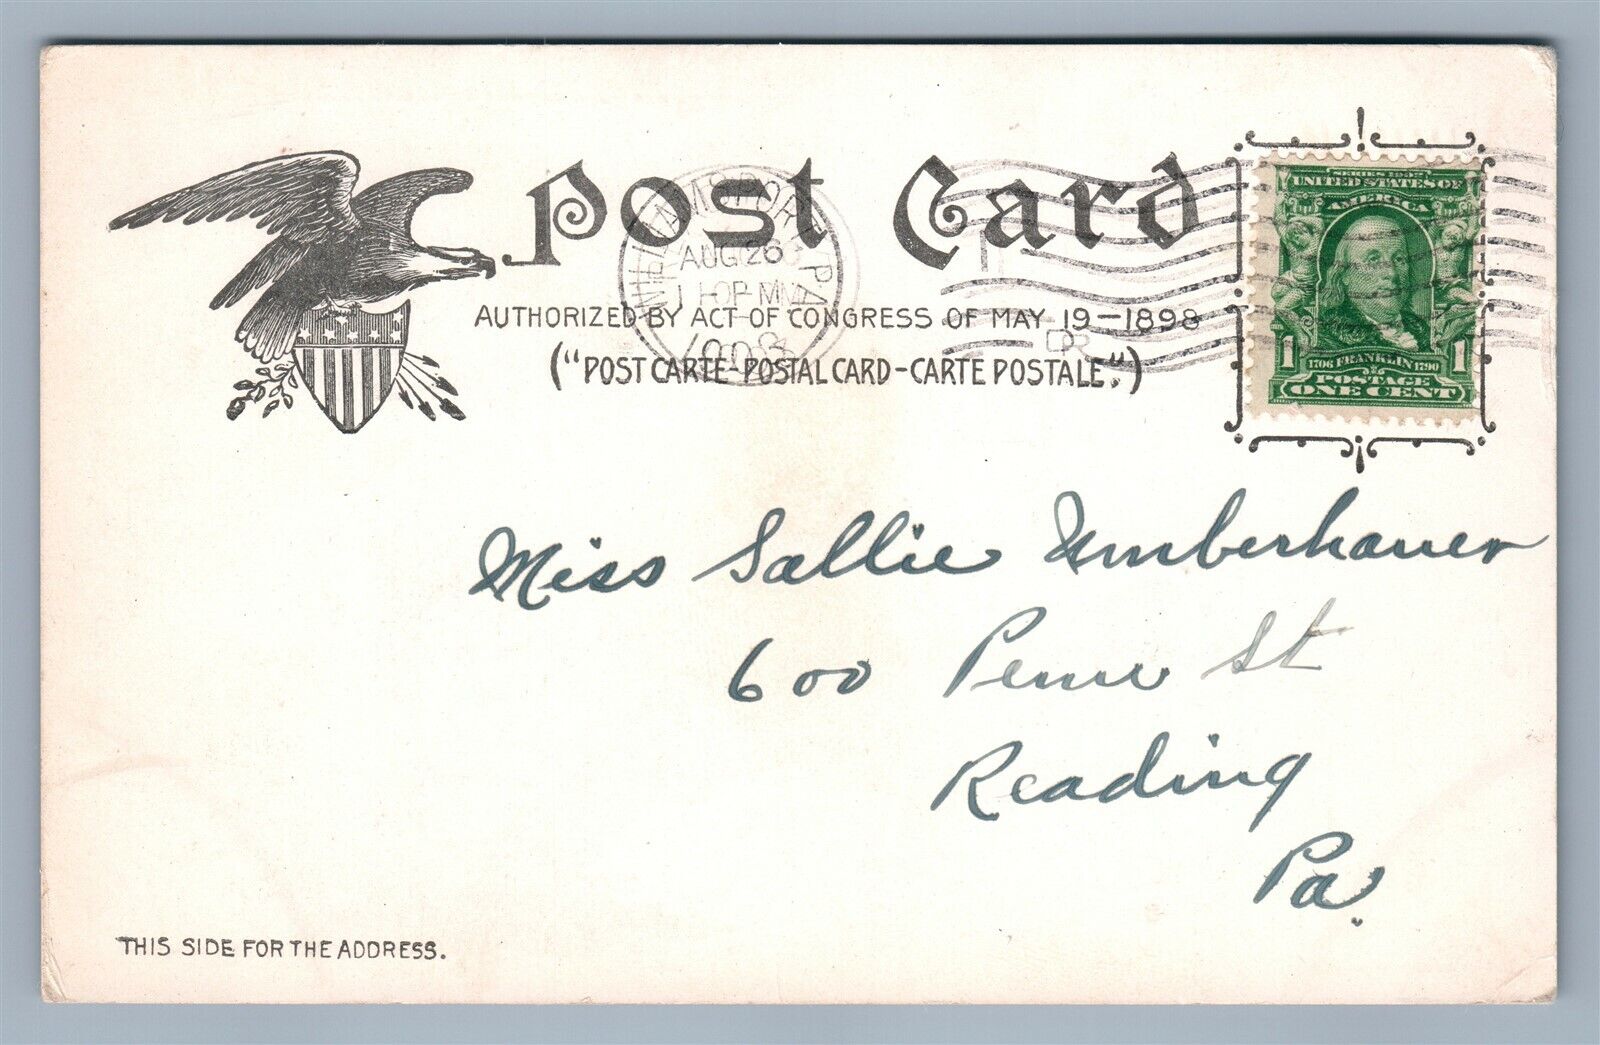 Post Card
WILLIAMSPORT PA
AUG 26
1908
AUTHORIZED BY ACT OF CONGRESS OF MAY 19-1898
("POST CARTE-POSTAL CARD-CARTE POSTALE.")
SERIES 1902
UNITED STATES OF
AMERICA
1 FRANKLIN 1
1706 1790
POSTAGE
ONE CENT
Miss Sallie Umberhauer
600 Penn St
Reading
Pa.
THIS SIDE FOR THE ADDRESS.